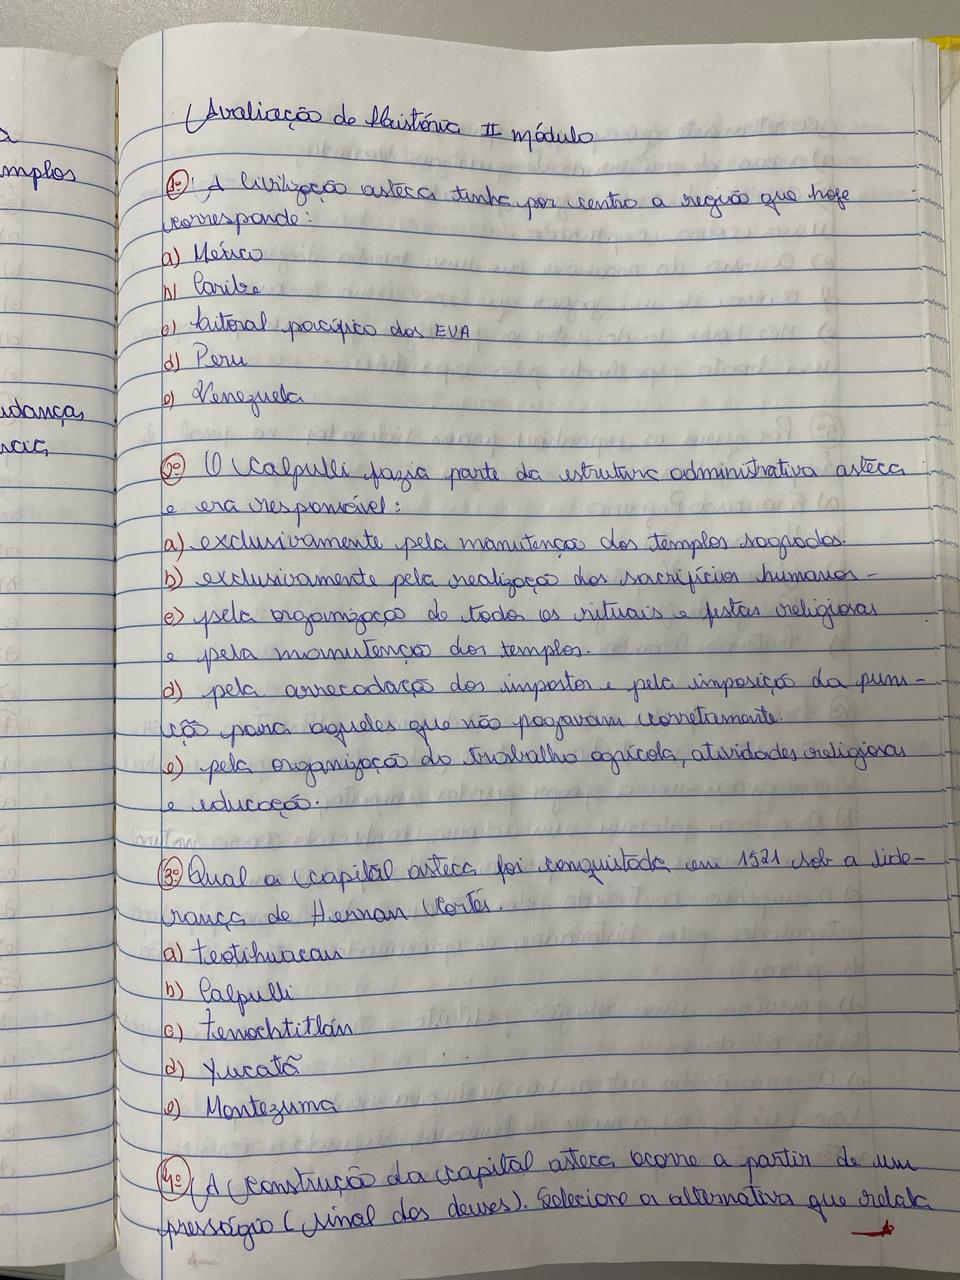 a
mplos
udanças
sas
Avaliação de História II módulo
1º: A civilização asteca tinha por centro a região que hoje
corresponde:
a) México
b) Caribe
c) Litoral pacífico dos EUA
d) Peru
e) Venezuela
2º O Calpulli fazia parte da estrutura administrativa asteca
e era responsável:
a) exclusivamente pela manutenção dos templos sagrados.
b) exclusivamente pela realização dos sacrifícios humanos-
c) pela organização de todos os rituais e festas religiosas
e pela manutenção dos templos.
d) pela arrecadação dos impostos e pela imposição da puni-
ção para aqueles que não pagavam corretamente.
e) pela organização do trabalho agrícola, atividades religiosas
e educação.
3º Qual a capital asteca foi conquistada em 1521 sob a lide-
rança de Hernan Cortés.
a) teotihuacan
b) Calpulli
c) tenochtitlán
d) Yucatã
e) Montezuma
4º A construção da capital asteca ocorre a partir de um
presságio (sinal dos deuses). Selecione a alternativa que relata